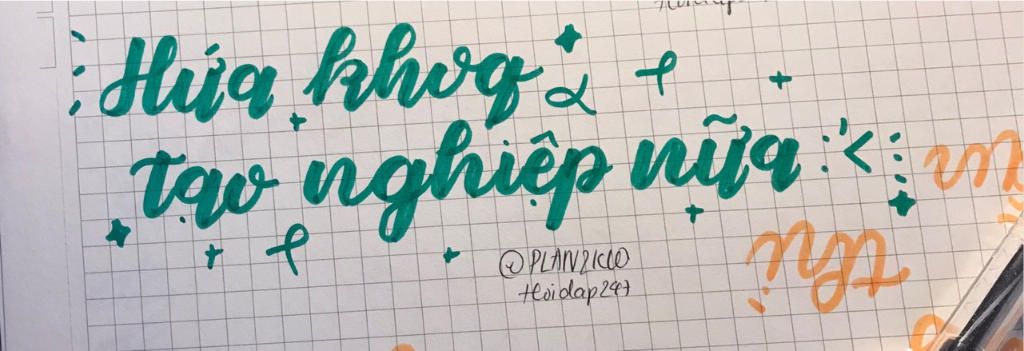 Hứa khoq
tạo nghiệp nữa :'<
@PLAN2KLO
Hoidap247
thi